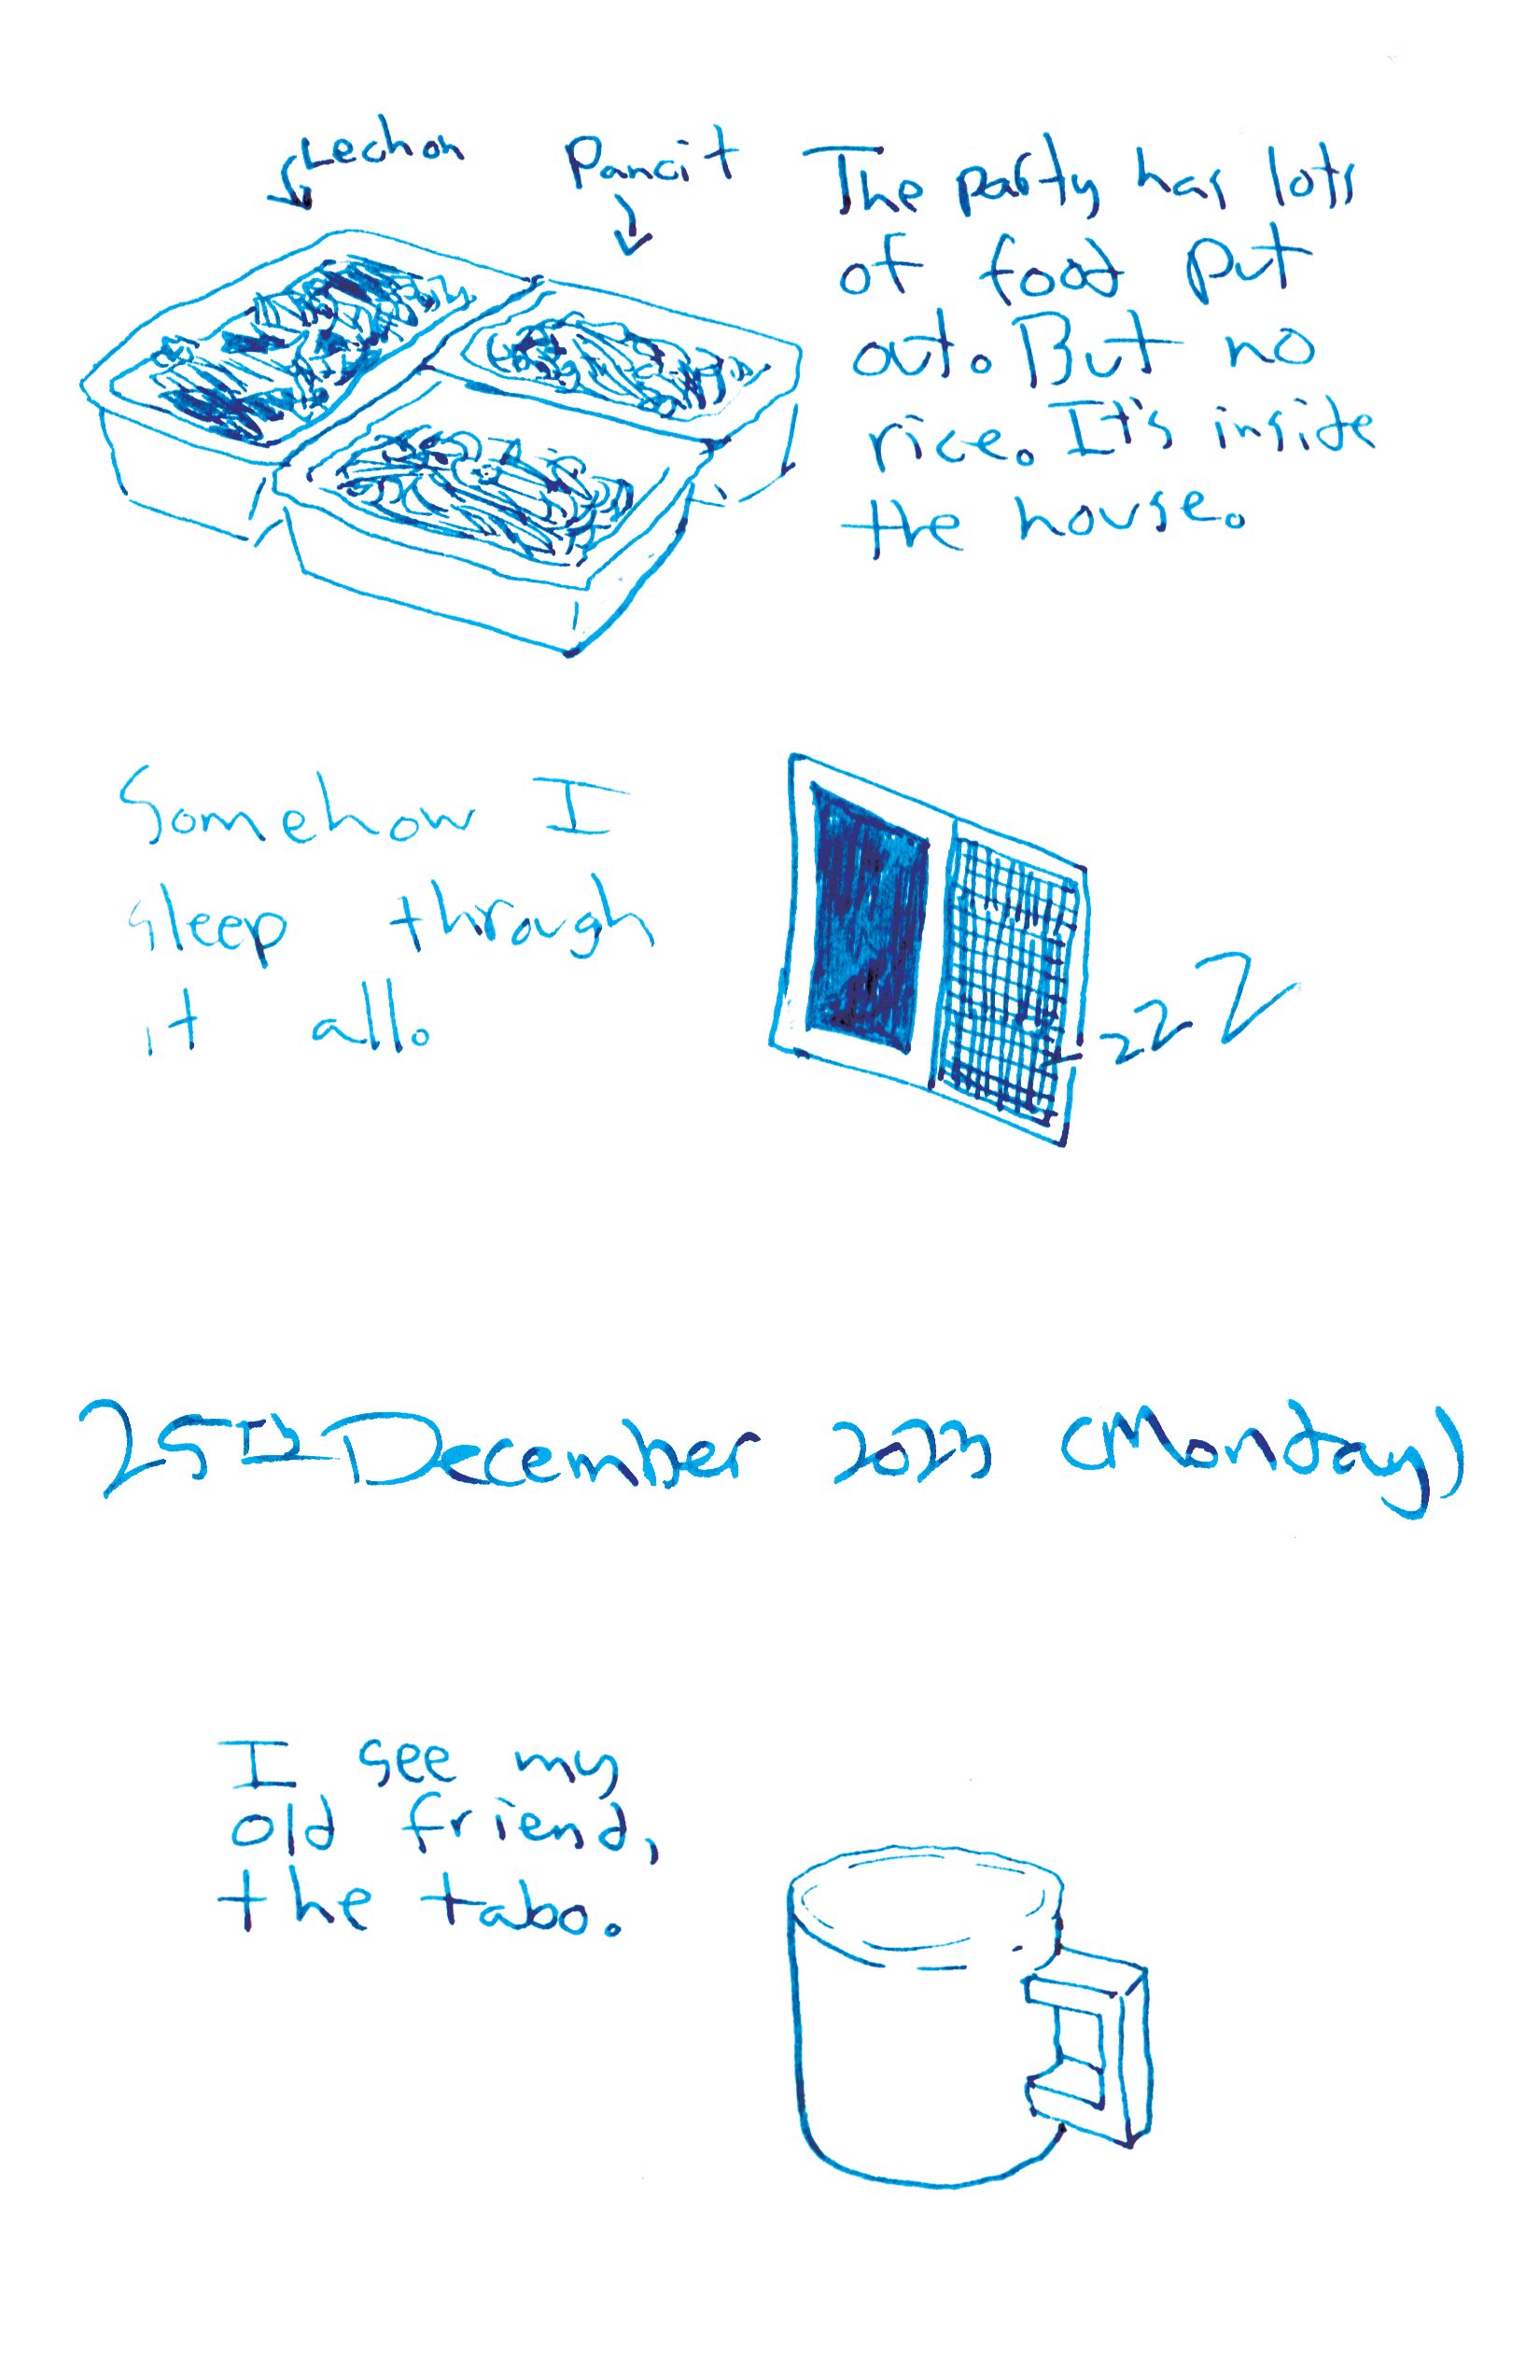 Lechon
Pancit
The party has lots
of food put
out. But no
rice. It's inside
the house.
Somehow I
sleep through
it all.
zzZ
25th December 2023 (Monday)
I see my
old friend,
the tabo.